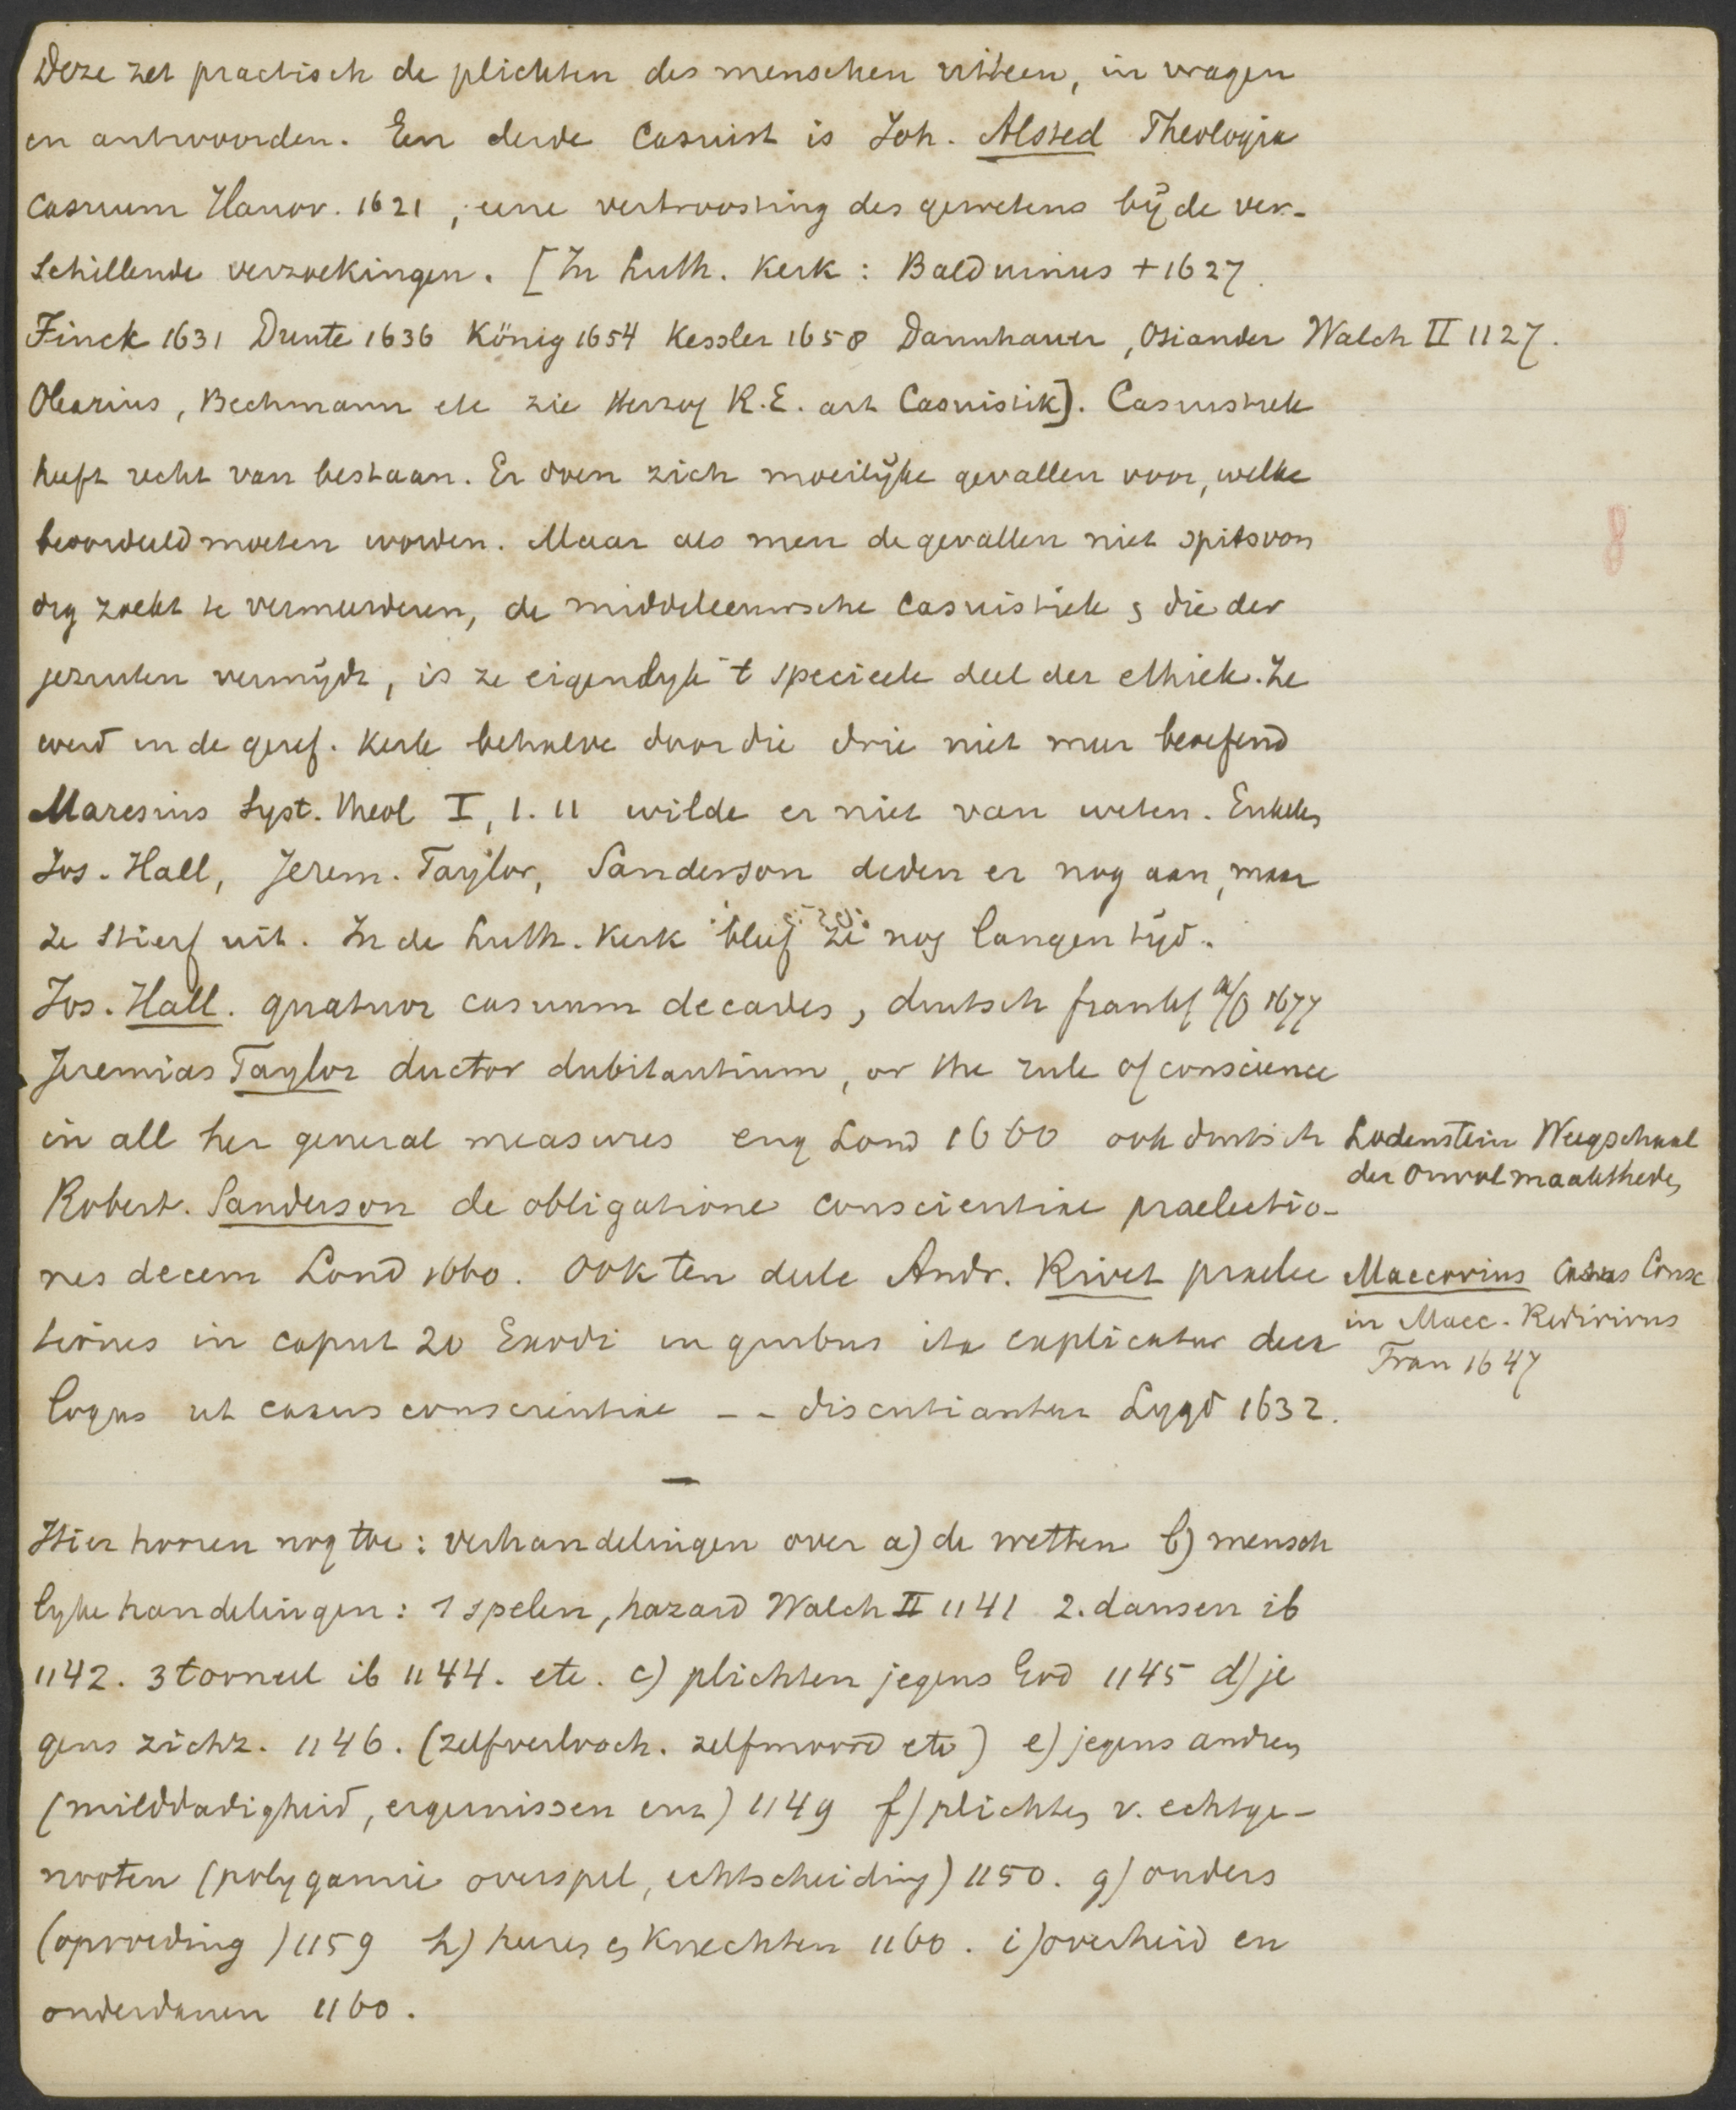 Deze zet practisch de plichten des menschen uiteen, in vragen
en antwoorden. Een derde Casuist is Joh. Alsted Theologia
casuum Hanov. 1621, eene vertroosting des gewetens bij de ver-
schillende verzoekingen. [In Luth. Kerk: Balduinus +1627.
Finck 1631 Dunte 1636 König 1654 Kessler 1658 Dannhauer, Osiander Walch II 1127.
Olearius, Bechmann etc zie Herzog R.E. art Casuistik]. Casuistiek
heeft recht van bestaan. Er doen zich moeilijke gevallen voor, welke
beoordeeld moeten worden. Maar als men de gevallen niet spitsvon
dig zoekt te vermeerderen, de middeleeuwsche casuistiek en die der
jezuiten vermijdt, is ze eigenlyk 't specieele deel der ethiek. Ze
werd in de geref. kerk behalve door die drie niet meer beoefend
Maresius Syst. theol I, 1. 11 wilde er niet van weten. Enkelen
Jos. Hall, Jerem. Taylor, Sanderson deden er nog aan, maar
ze stierf uit. In de Luth. Kerk bleef ze nog langen tijd.
Jos. Hall. quatuor casuum decades, duitsch frankf a/O 1677
Jeremias Taylor ductor dubitantium, or the rule of conscience
in all her general measures eng Lond 1660 ook duitsch
Robert. Sanderson de obligatione conscientiae praelectio-
nes decem Lond 1660. Ook ten deele Andr. Rivet praelec
tiones in caput 20 Exodi in quibus ita explicatur deca
logus ut casus conscientiae -- discutiantur Lugd 1632.
Lodenstein Weegschaal
der Onvolmaaktheden
Maccovius Casus Consc
in Macc. Redivivus
Fran 1647
Hier hooren nog toe: verhandelingen over a) de wetten b) mensch
lyke handelingen: 1 spelen, hazard Walch II 1141 2. dansen ib
1142. 3 torneel ib 1144. etc. c) plichten jegens God 1145 d) je
gens zichz. 1146. (zelfverlooch. zelfmoord etc) e) jegens andren
(milddadigheid, ergernissen enz) 1149 f) plichten v. echtge-
nooten (polygamie overspel, echtscheiding) 1150. g) ouders
(opvoeding) 1159 h) heeren en knechten 1160. i) overheid en
onderdanen 1160.
8